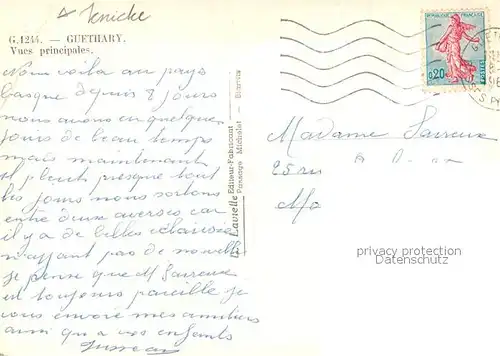 Jenicke
G.1244. — GUETHARY.
Vues principales.
Nous voila au pays
basque depuis 8 jours
nous avons eu quelques
jours de beau temps
mais maintenant
il pleut presque tout
les jours nous sortons
entre deux averses car
il y a de belles éclaircies
n'ayant pas de nouvelle
je pense que M
est toujours pareille je
vous envoie mes amitiers
ainsi qu a vos enfants
Lavielle Editeur-Fabricant
Passage Michelet - Biarritz
REPUBLIQUE FRANÇAISE
0,20
POSTES
Madame
25 rue
privacy protection
Datenschutz